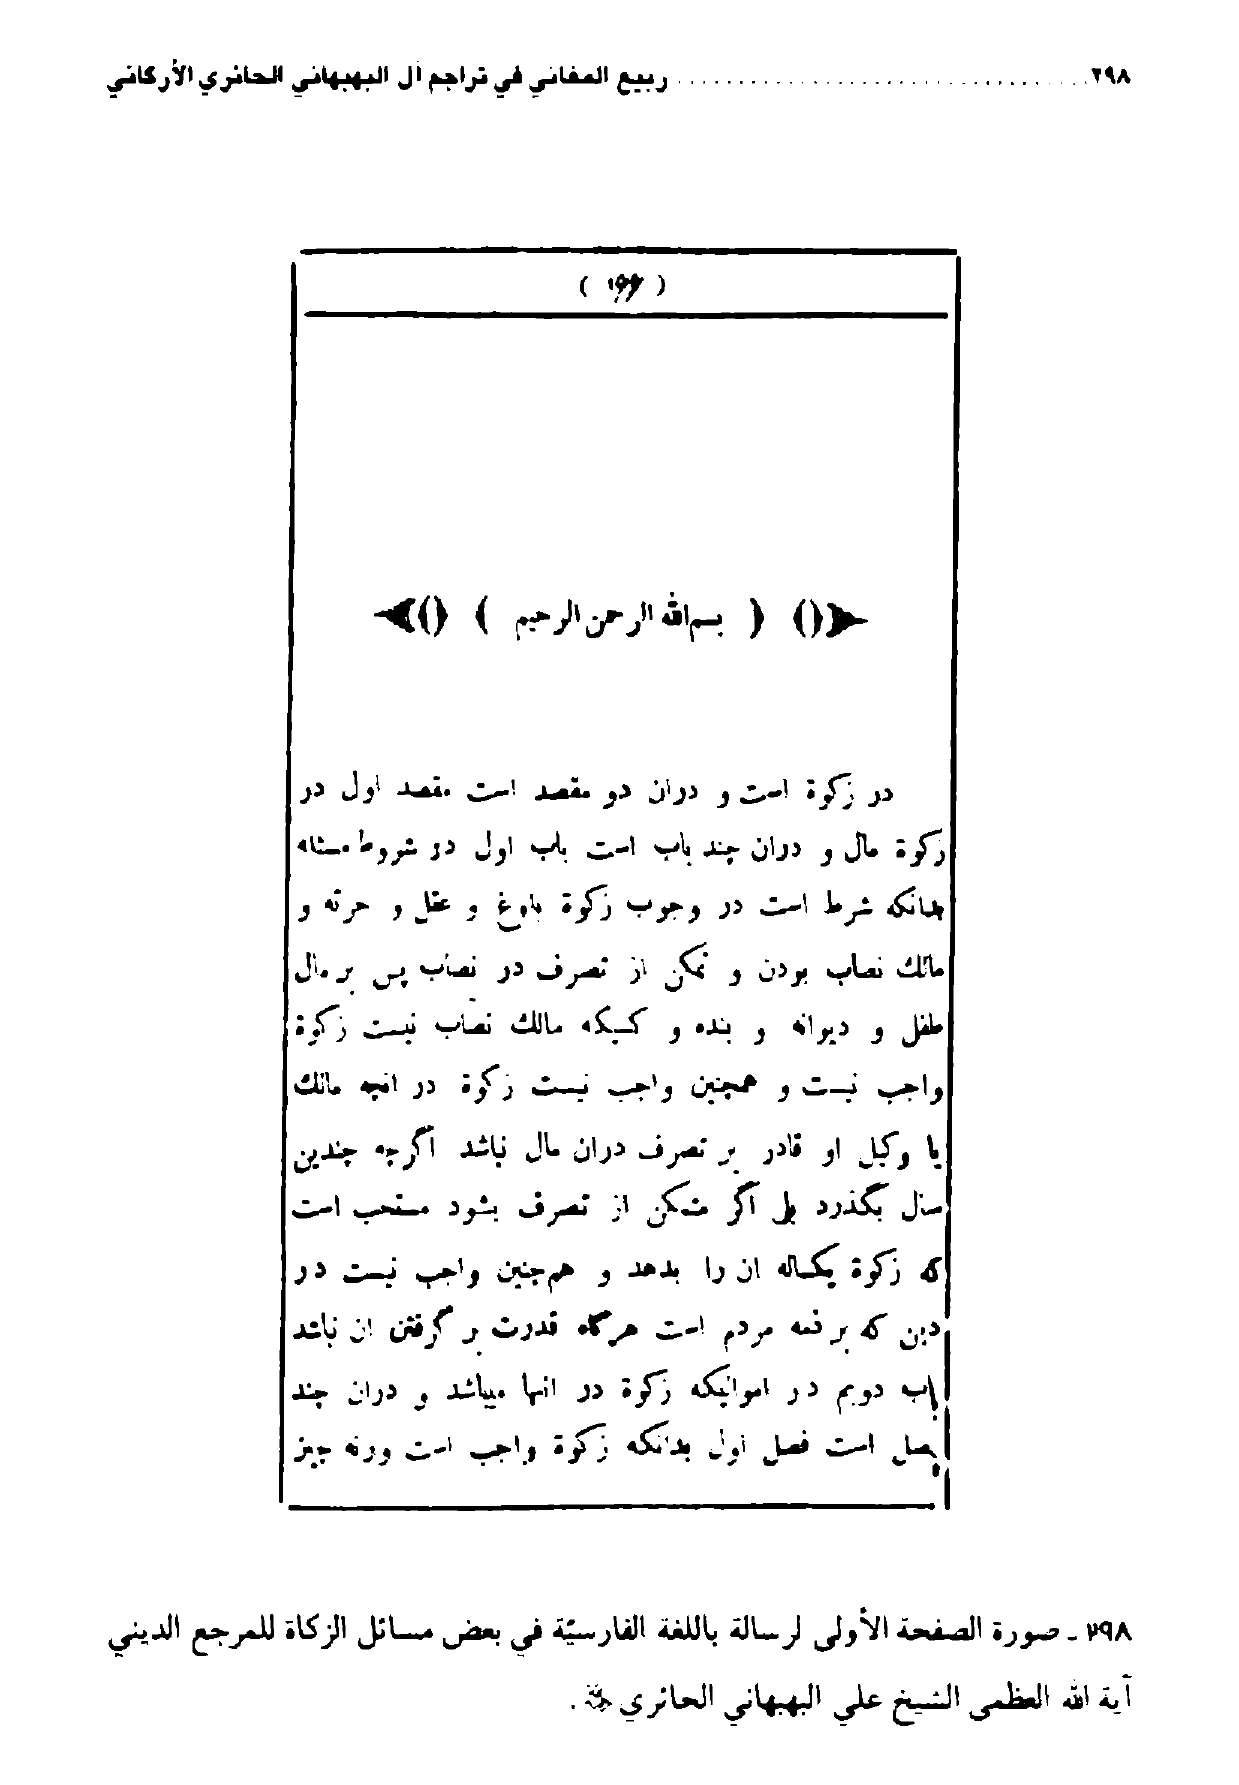 ٢٩٨ ........................................ ربيع المغاني في تراجم آل البهبهاني الحائري الأركاني
بسم الله الرحمن الرحيم
در زكوة است و دران دو مقصد است مقصد اول در
زكوة مال و دران چند باب است باب اول در شروط مسئله
بدانكه شرط است در وجوب زكوة بلوغ و عقل و حرته و
مالك نصاب بودن و تمكن از تصرف در نصاب پس بر مال
طفل و ديوانه و بنده و كسيكه مالك نصاب نيست زكوة
واجب نيست و همچنين واجب نيست زكوة در انچه مالك
يا وكيل او قادر بر تصرف دران مال نباشد اگرچه چندين
سال بگذرد بلى اگر متمكن از تصرف بشود مستحب است
كه زكوة يكساله ان را بدهد و همچنين واجب نيست در
دين كه بر ذمه مردم است هرگاه قدرت بر گرفتن ان نباشد
باب دويم در اموالیكه زكوة در انها ميباشد و دران چند
فصل است فصل اول بدانكه زكوة واجب است ورنه چيز
٢٩٨ ـ صورة الصفحة الأولى لرسالة باللغة الفارسيّة في بعض مسائل الزكاة للمرجع الديني
آية الله العظمى الشيخ علي البهبهاني الحائري .